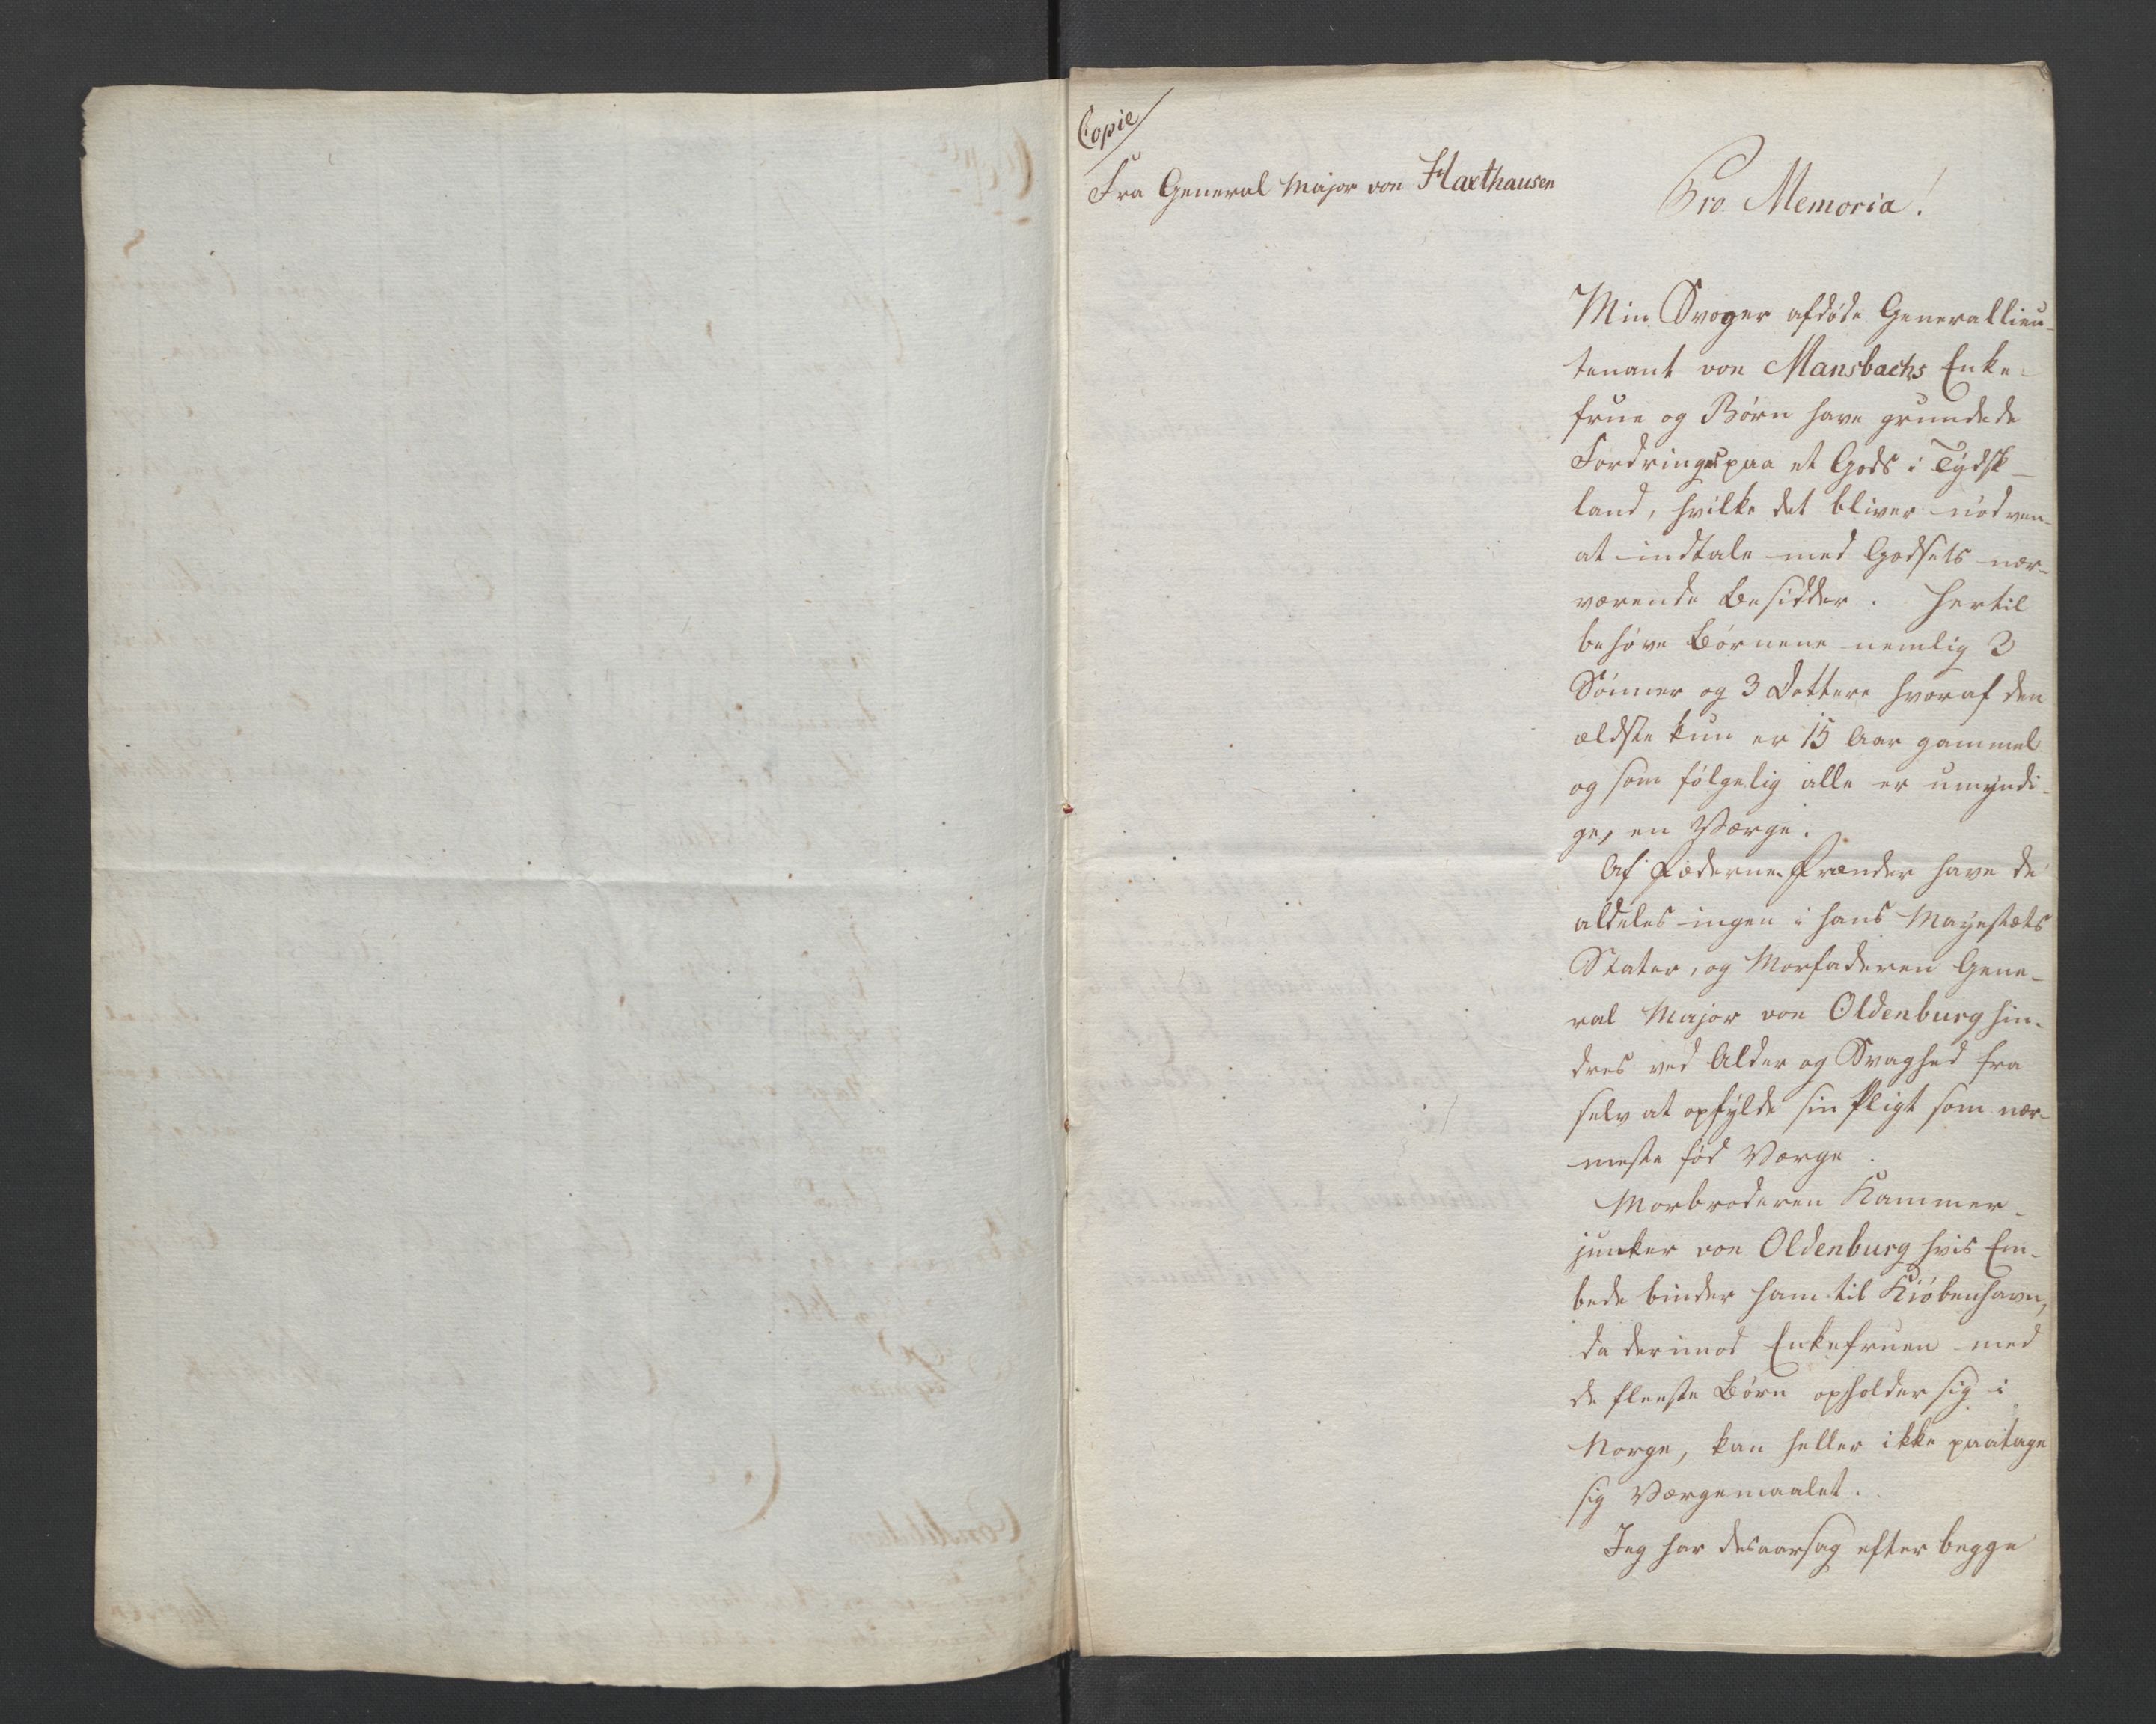 Copie
Fra General Major von Haxthausen
Pro Memoria!
Min Svoger afdøde Generallieu-
tenant von Mansbachs Enke-
frue og Børn have grundede
Fordringer paa et Gods i Tydsk-
land, hvilke det bliver nødven-
at indtale med Godsets nær-
værende Besidder. Hertil
behøve Børnene nemlig 3
Sønner og 3 Døttere hvoraf den
ældste kun er 15 Aar gammel
og som følgelig alle er umyndi-
ge, en Værge.
Af Fæderne Frænder have de
aldeles ingen i Hans Mayestæts
Stater, og Morfaderen Gene-
ral Major von Oldenburg hin-
dres ved Alder og Svaghed fra
selv at opfylde sin Pligt som nær-
meste fød Værge.
Morbroderen Kammer-
junker von Oldenburg hvis Em-
bede binder ham til Kiøbenhavn,
da derimod Enkefruen med
de fleeste Børn opholder sig i
Norge, kan heller ikke paatage
sig Værgemaalet.
Jeg har desaarsag efter begge